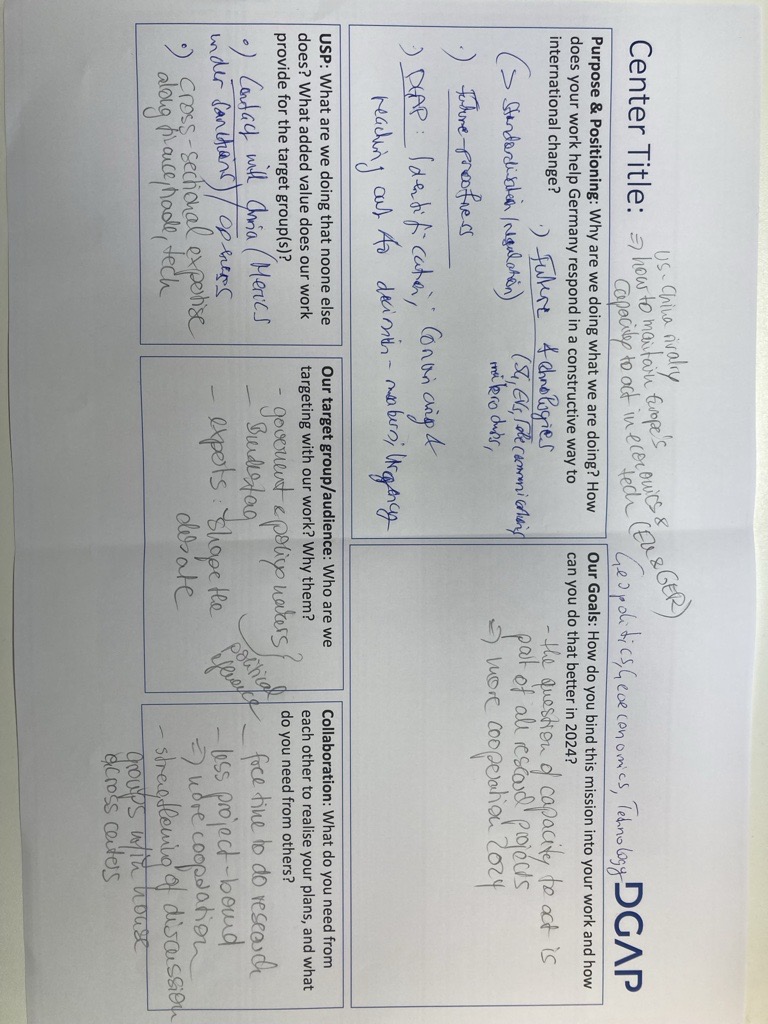 Center Title: Geopolitics, Geoeconomics, Technology
DGAP
US-China rivalry
⇒ how to maintain Europe's
capacity to act in economics &
tech (EU & GER)
Purpose & Positioning: Why are we doing what we are doing? How
does your work help Germany respond in a constructive way to
international change?
•) Future technologies
(5G, EVs, Telecommunications,
(-> Standardisation/regulation)
•) Future-proofness
•) DGAP: Identification, Convening &
reaching out to decision-makers, Urgency
Our Goals: How do you bind this mission into your work and how
can you do that better in 2024?
- the question of capacity to act is
part of all research projects
⇒ more cooperation 2024
USP: What are we doing that noone else
does? What added value does our work
provide for the target group(s)?
•) Contact with China (Merics
under sanctions) / openness
•) cross-sectional expertise
along finance, trade, tech
Our target group/audience: Who are we
targeting with our work? Why them?
- government & policy makers }
- Bundestag
political
- experts: shape the
debate
Collaboration: What do you need from
each other to realise your plans, and what
do you need from others?
- free time to do research
- less project-bound
⇒ more cooperation
- strengthening of discussion
groups within house
across centers